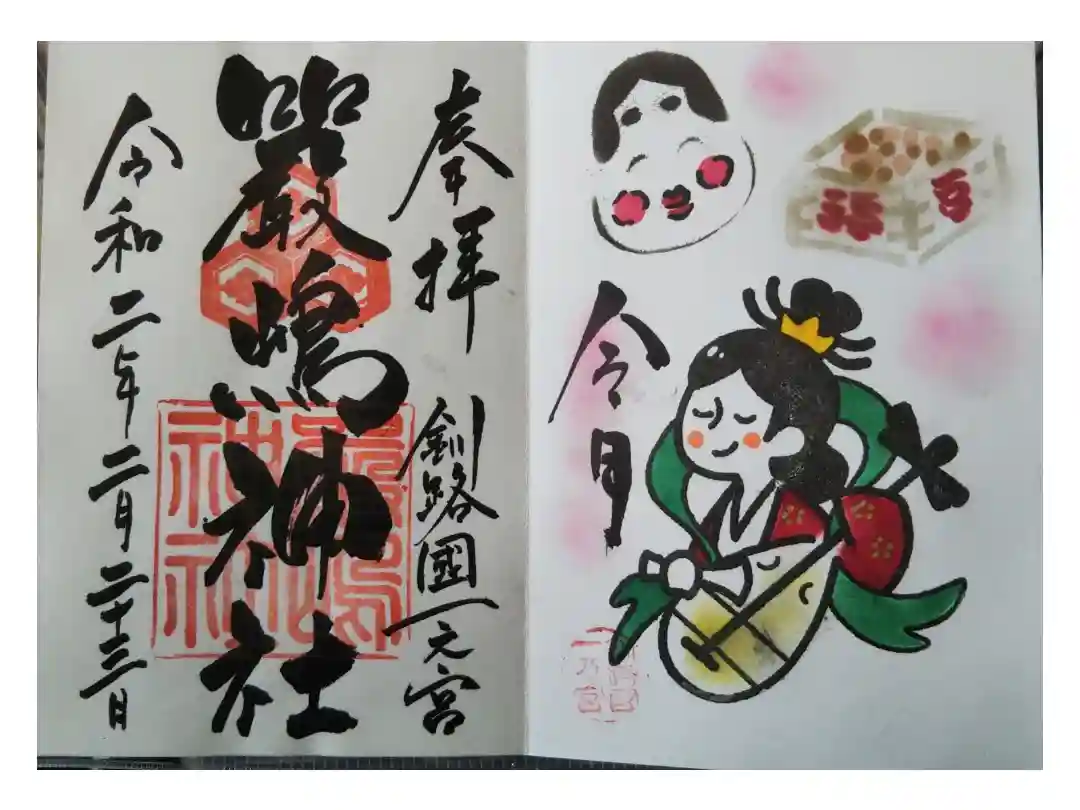 奉拝
釧路國一之宮
嚴嶋神社
令和二年二月二十三日
嚴嶋
神社
福
令月
一乃宮